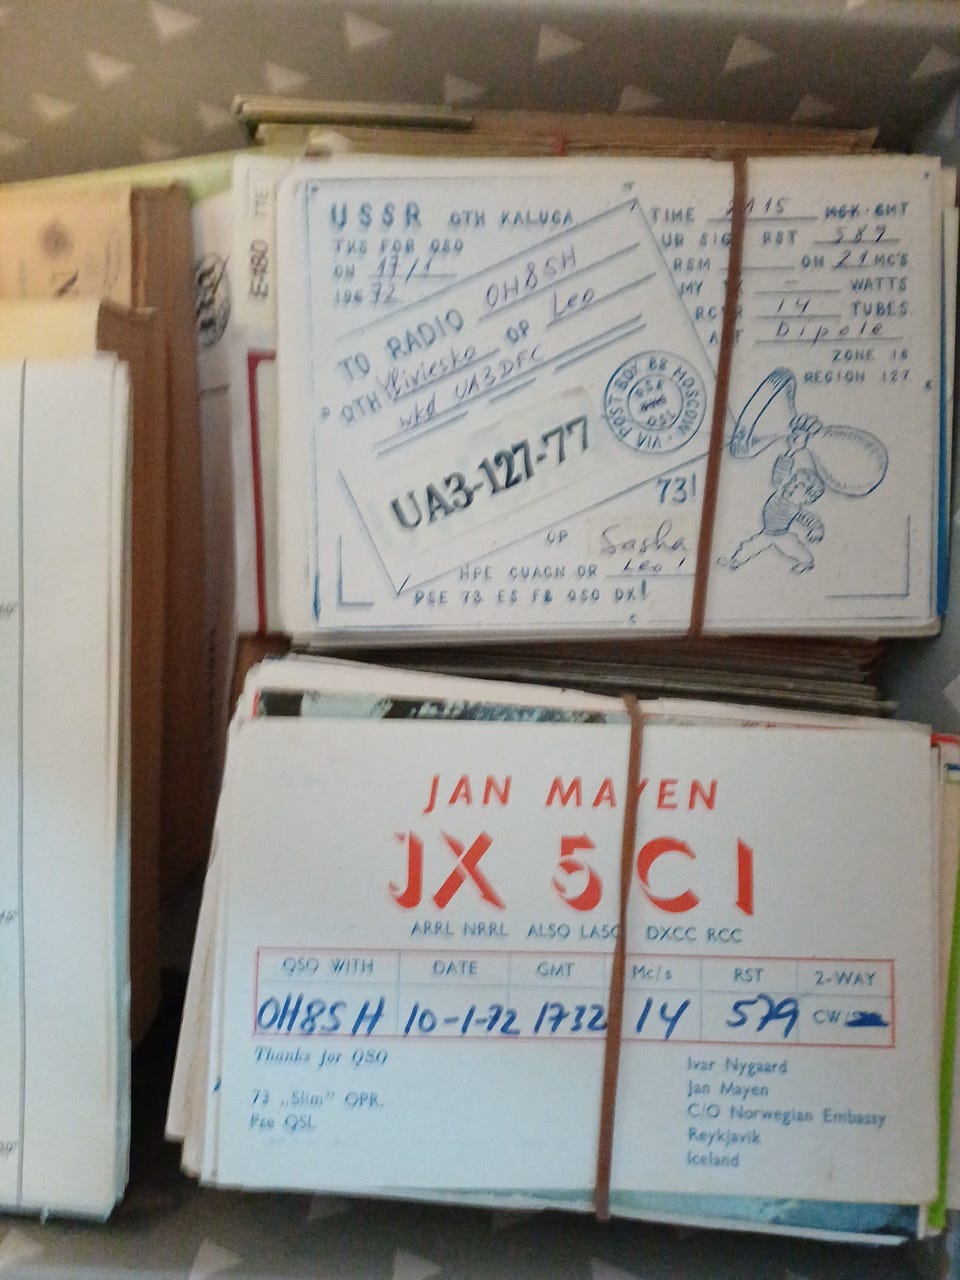 USSR QTH KALUGA
TKS FOR QSO
ON 17/1
1972
TO RADIO OH8SH
QTH Ylivieska OP Leo
wkd UA3DFC
UA3-127-77
VIA POST BOX 88 MOSCOW
TIME 2115 MSK·GMT
UR SIG RST 589
RSM ON 21 MC'S
MY - WATTS
14 TUBES
Dipole
ZONE 16
REGION 127
73!
OP Sasha
HPE CUAGN DR Leo!
PSE 73 ES FB QSO DX!
E-480
JAN MAYEN
JX 5CI
ARRL NRRL ALSO DXCC RCC
QSO WITH DATE GMT Mc/s RST 2-WAY
OH8SH 10-1-72 1732 14 579 CW/
Thanks for QSO
73 „Slim" OPR.
Pse QSL
Ivar Nygaard
Jan Mayen
C/O Norwegian Embassy
Reykjavik
Iceland